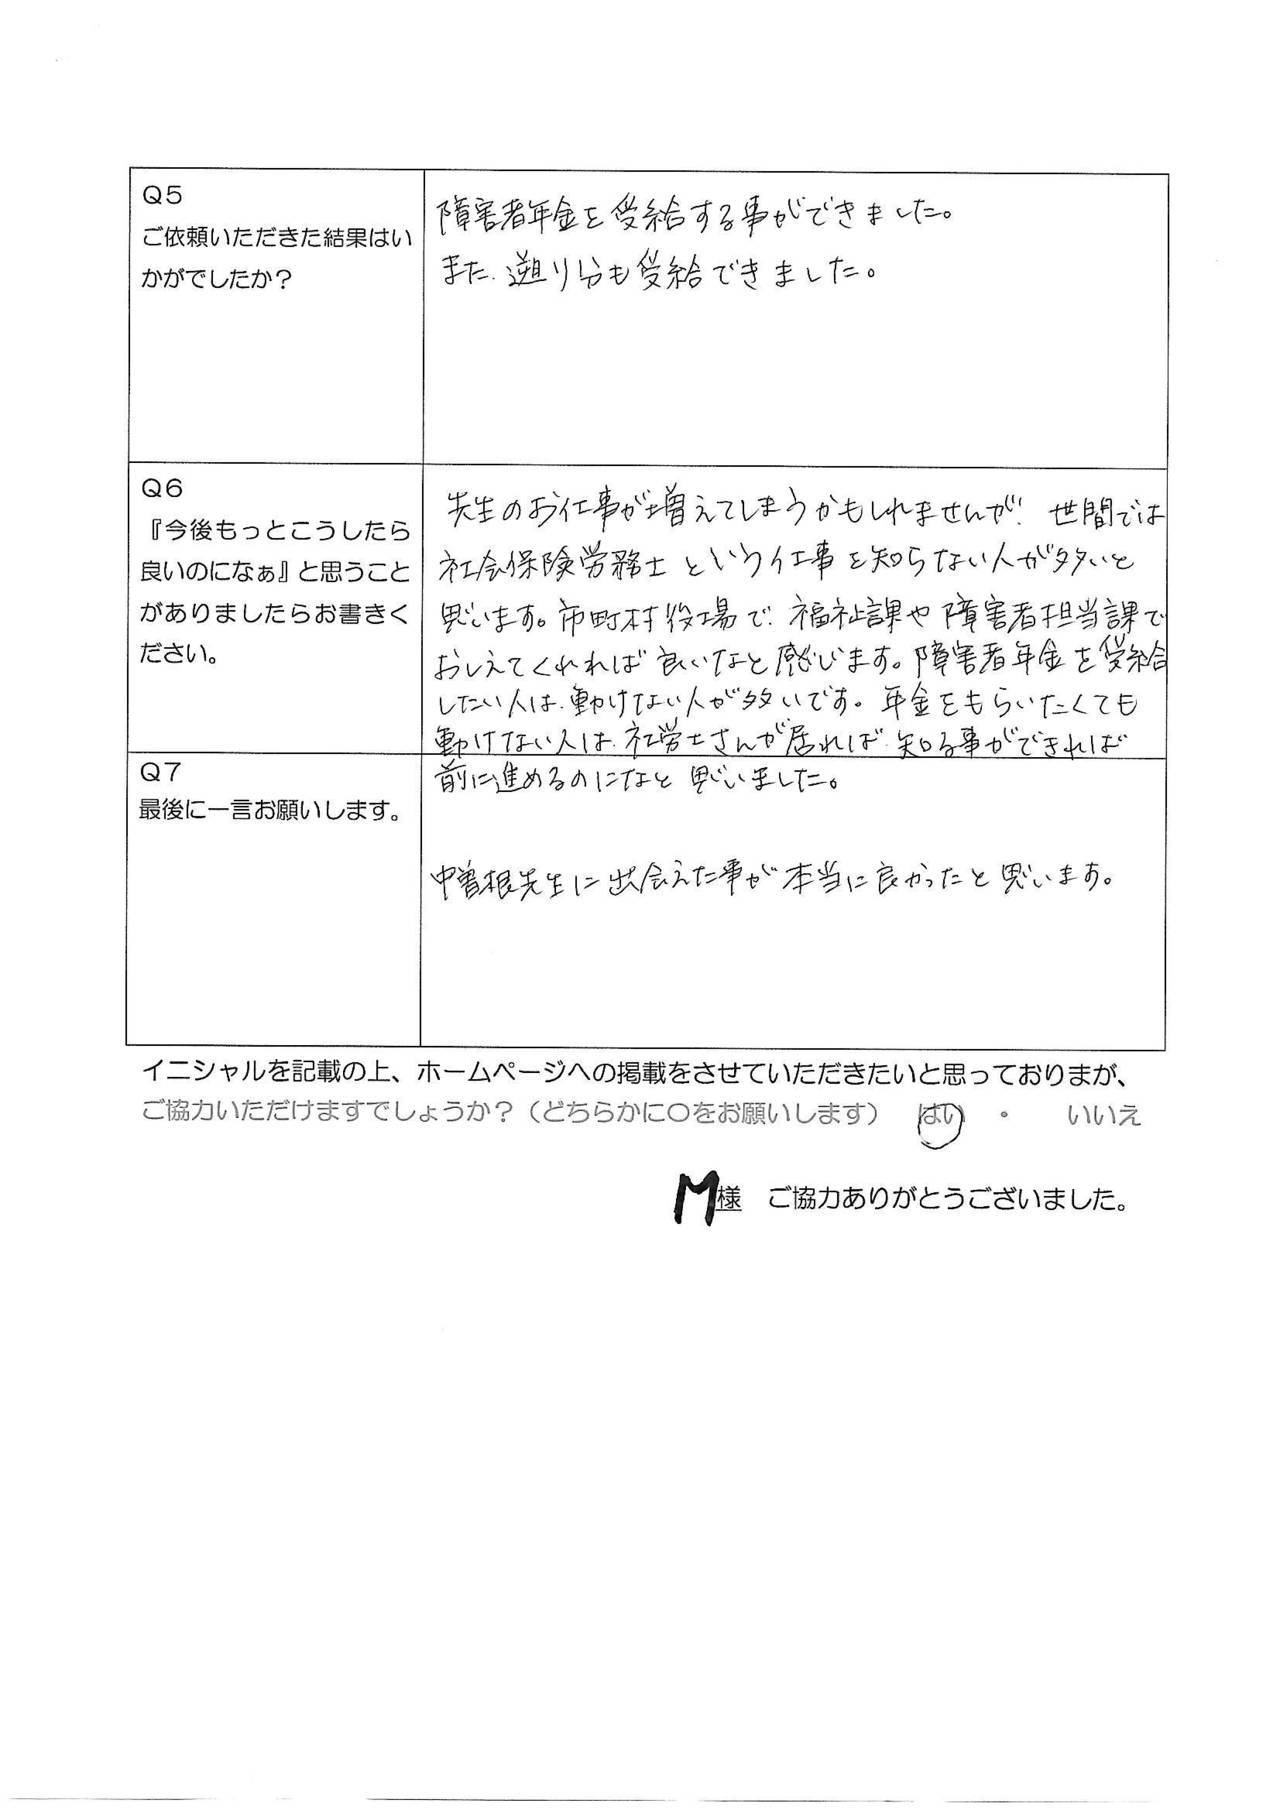 Q5
ご依頼いただきた結果はい
かがでしたか？
障害者年金を受給する事ができました。
また、遡り分も受給できました。
Q6
『今後もっとこうしたら
良いのになぁ』と思うこと
がありましたらお書きく
ださい。
先生のお仕事が増えてしまうかもしれませんが、世間では
社会保険労務士という仕事を知らない人が多いと
思います。市町村役場で、福祉課や障害者担当課で
おしえてくれれば良いなと感じます。障害者年金を受給
したい人は、動けない人が多いです。年金をもらいたくても
動けない人は、社労士さんが居れば、知る事ができれば
前に進めるのになと思いました。
Q7
最後に一言お願いします。
中曽根先生に出会えた事が本当に良かったと思います。
イニシャルを記載の上、ホームページへの掲載をさせていただきたいと思っておりまが、
ご協力いただけますでしょうか？（どちらかに〇をお願いします） はい ・ いいえ
M様 ご協力ありがとうございました。